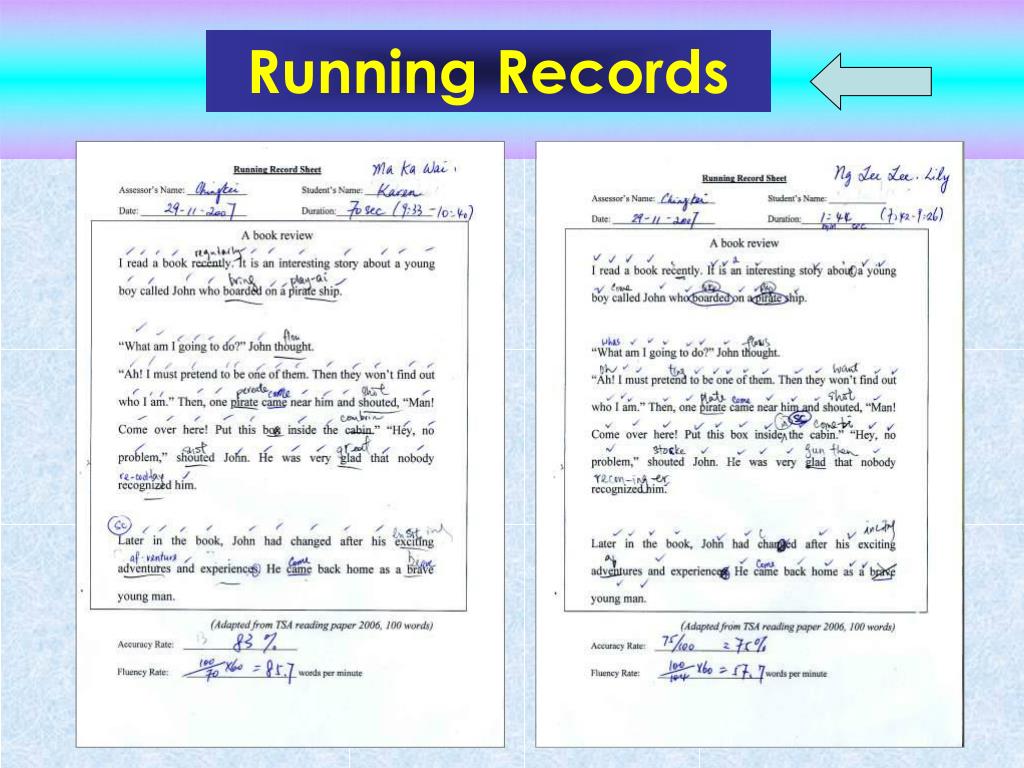 Running Records
Running Record Sheet
Ma Ka Wai
Assessor's Name: Chingkei
Student's Name: Karen
Date: 29-11-2007
Duration: 70 sec (9:33 - 10:40)
A book review
regularly
I read a book recently. It is an interesting story about a young
bring play-ai
boy called John who boarded on a pirate ship.
flow
“What am I going to do?” John thought.
“Ah! I must pretend to be one of them. Then they won’t find out
come shot
who I am.” Then, one pirate came near him and shouted, “Man!
Come over here! Put this box inside the cabin.” “Hey, no
shot great
problem,” shouted John. He was very glad that nobody
recognized him.
SC
Later in the book, John had changed after his exciting
af-venture come
adventures and experiences. He came back home as a brave
young man.
(Adapted from TSA reading paper 2006, 100 words)
Accuracy Rate: 83 %
Fluency Rate: 100/70 x60 = 85.7 words per minute
Running Record Sheet
Ng Lee Lee. Lily
Assessor's Name: Chingkei
Student's Name:
Date: 29-11-2007
Duration: 1=44 (7:42-9:26)
min sec
A book review
a
I read a book recently. It is an interesting story about a young
come
boy called John who boarded on a pirate ship.
whas flows
“What am I going to do?” John thought.
oh ting want
“Ah! I must pretend to be one of them. Then they won’t find out
plate come shot
who I am.” Then, one pirate came near him and shouted, “Man!
SC come-bi
Come over here! Put this box inside the cabin.” “Hey, no
storke
problem,” shouted John. He was very glad that nobody
recon-ing-er
recognized him.
Later in the book, John had changed after his exciting
come
adventures and experiences. He came back home as a brave
young man.
(Adapted from TSA reading paper 2006, 100 words)
Accuracy Rate: 75/100 = 75%
Fluency Rate: 100/104 x60 = 57.7 words per minute